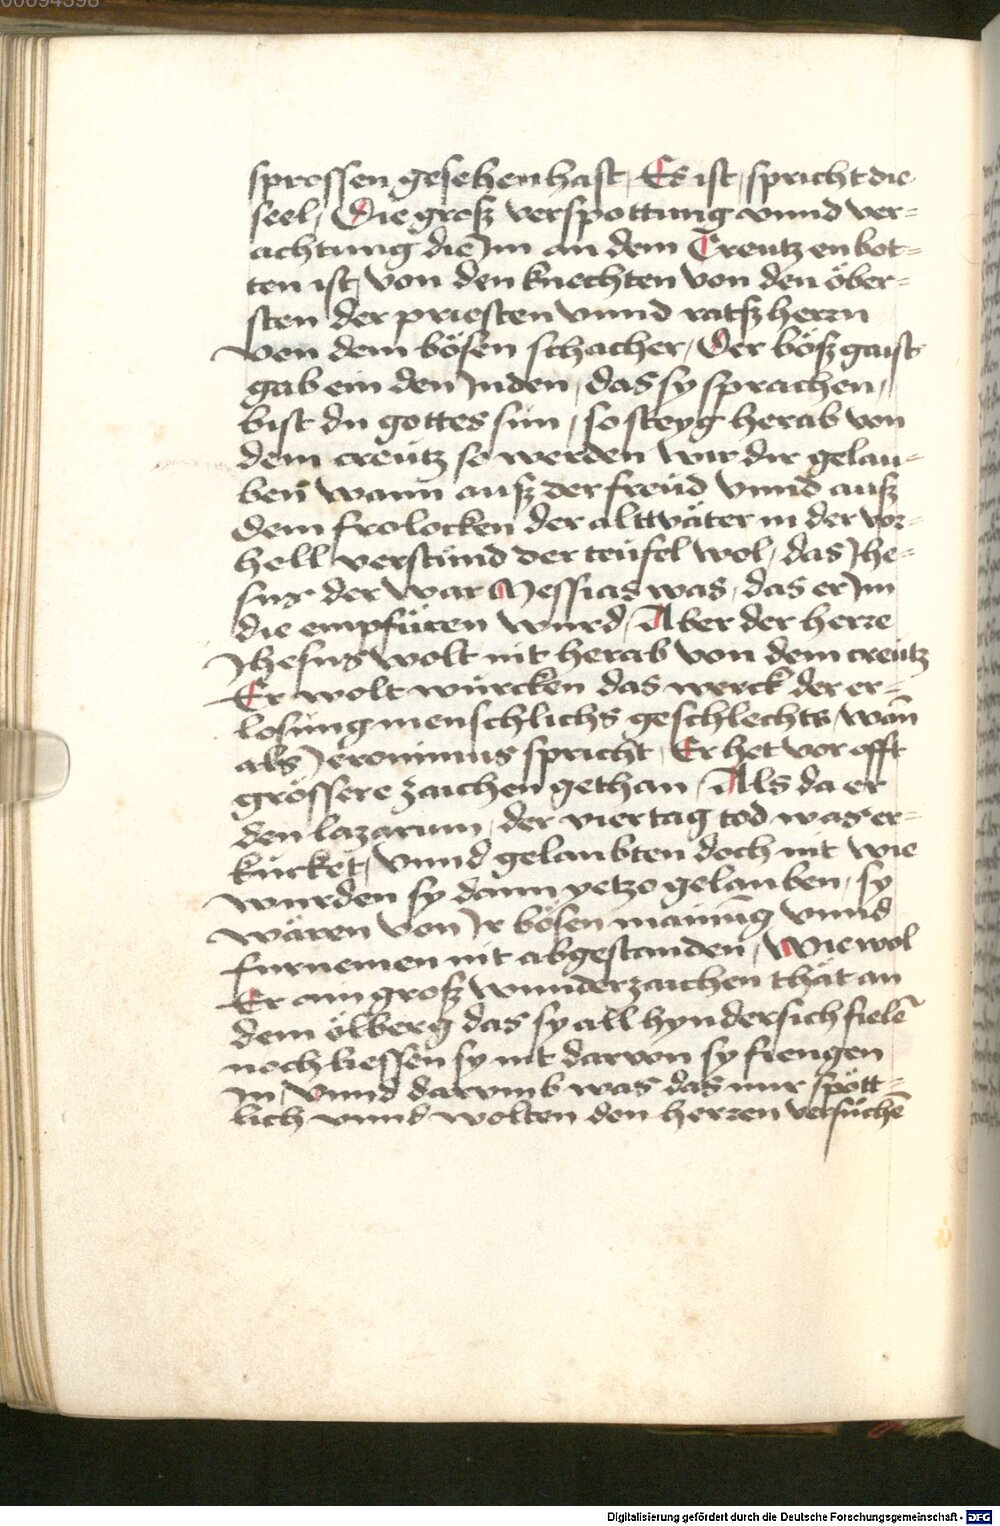 00094398
sprossen gesehen hast, Es ist, spricht die
seel, Die groß verspottung vnnd ver=
achtung die Jm an dem Creutz enbot=
ten ist, von den knechten von den öber=
sten der priesten vnnd ratßherrn
von dem bösen schacher, Der böß gaist
gab ein den Juden, das sy sprachen,
bist du gottes sun, so steyg herab von
dem creütz so werden wir dir gelau=
ben wann auß der freüd vnnd auß
dem frolocken der alttväter in der vor=
hell verstünd der teüfel wol, das Jhe=
sus der war Messias was, das er Jm
die empfüren wurd, Aber der herre
Jhesus wolt nit herab von dem creütz
Er wolt würcken das werck der er=
losung menschlichs geschlechts, wan̄
als Jeronimus spricht, Er het vor offt
grössere zaichen gethan, Als da er
den lazarum, der vier tag tod was er=
kücket, vnnd gelaubten doch nit wie
wurden sy dann yetzo gelauben, sy
wären von Jr bösen mainūg vnnd
furnemen nit abgestanden, Wie wol
Er ain groß wunderzaichen thät an
dem ölberg das sy all hyndersich fielē
noch liessen sy nit darvon sy fiengen
in, vnnd darvmb was das nur spött=
lich vnnd wolten den herren versüchē
Digitalisierung gefördert durch die Deutsche Forschungsgemeinschaft - DFG